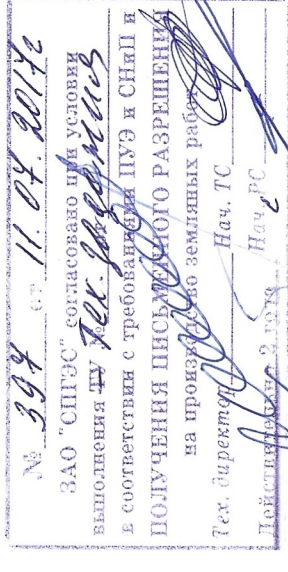 № 397 от 11.07.2017г
ЗАО "СПГЭС" согласовано при условии
выполнения ТУ № Тех. задания
в соответствии с требованиями ПУЭ и СНиП и
ПОЛУЧЕНИЯ ПИСЬМЕННОГО РАЗРЕШЕНИЯ
на производство земляных работ
Тех. директор Нач. ТС
Действительно 2 года Нач. РС